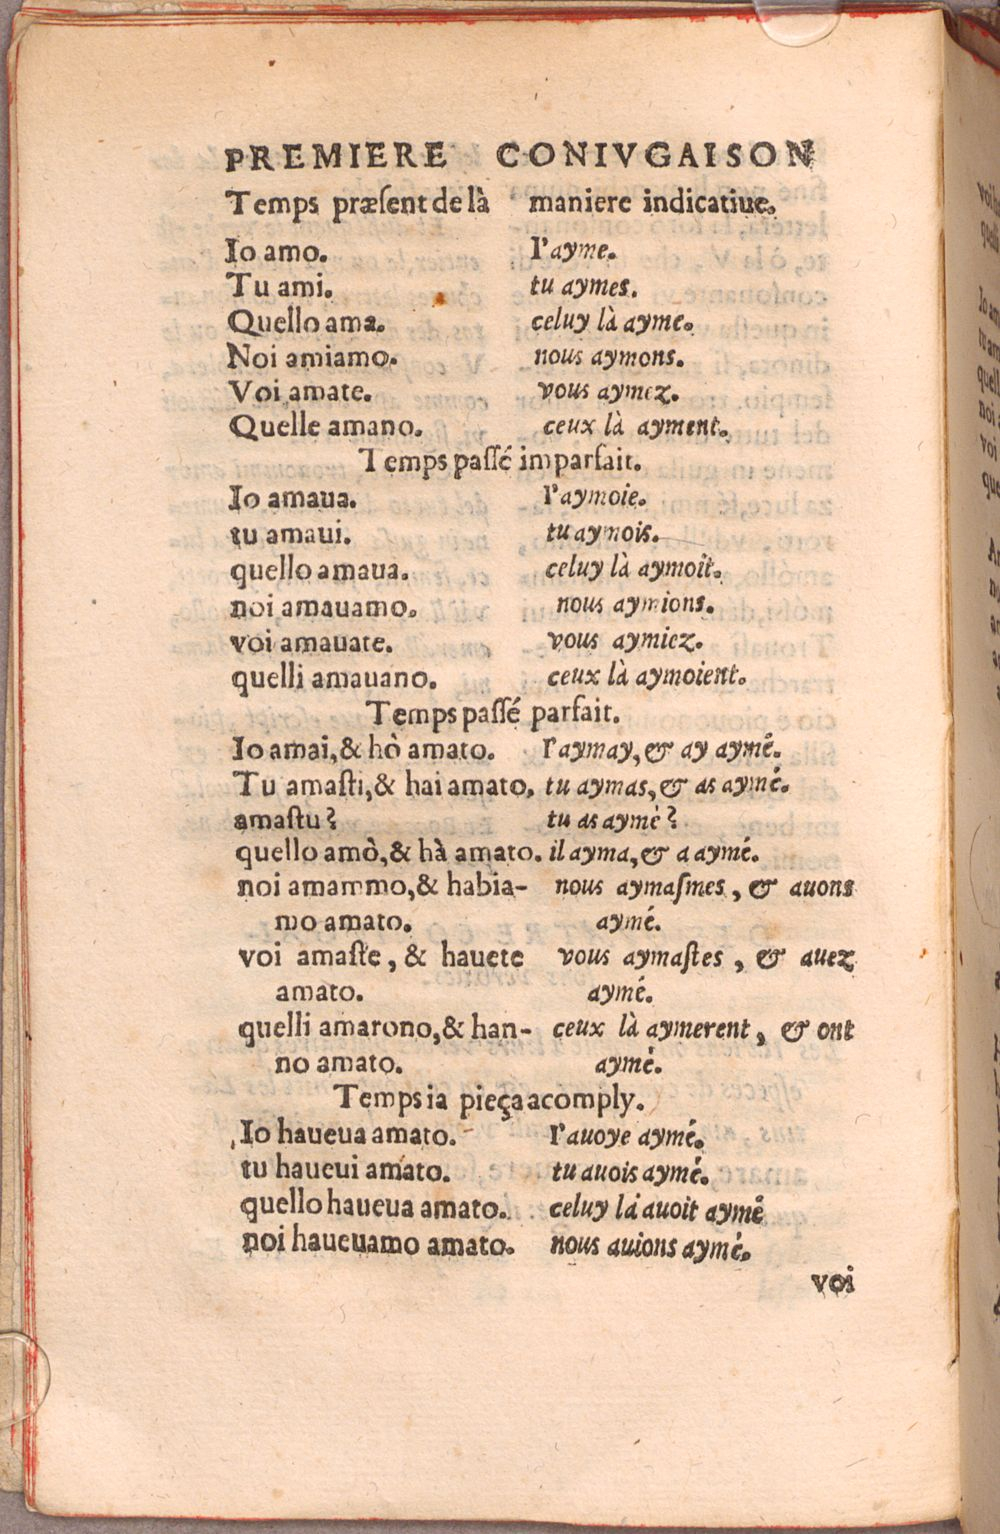 PREMIERE CONIVGAISON
Temps præſent de là maniere indicatiue.
Io amo. I'ayme.
Tu ami. tu aymes.
Quello ama. celuy là ayme.
Noi amiamo. nous aymons.
Voi amate. vous aymez.
Quelle amano. ceux là ayment.
Temps paſſé imparfait.
Io amaua. I'aymoie.
tu amaui. tu aymois.
quello amaua. celuy là aymoit.
noi amauamo. nous aymions.
voi amauate. vous aymiez.
quelli amauano. ceux là aymoient.
Temps paſſé parfait.
Io amai, & hò amato. I'aymay, & ay aymé.
Tu amaſti, & hai amato. tu aymas, & as aymé.
amaſtu? tu as aymé?
quello amò, & hà amato. il ayma, & a aymé.
noi amammo, & habia- nous aymaſmes, & auons
mo amato. aymé.
voi amaſte, & hauete vous aymaſtes, & auez
amato. aymé.
quelli amarono, & han- ceux là aymerent, & ont
no amato. aymé.
Temps ia pieça acomply.
Io haueua amato. I'auoye aymé.
tu haueui amato. tu auois aymé.
quello haueua amato. celuy là auoit aymé
noi haueuamo amato. nous auions aymé.
voi